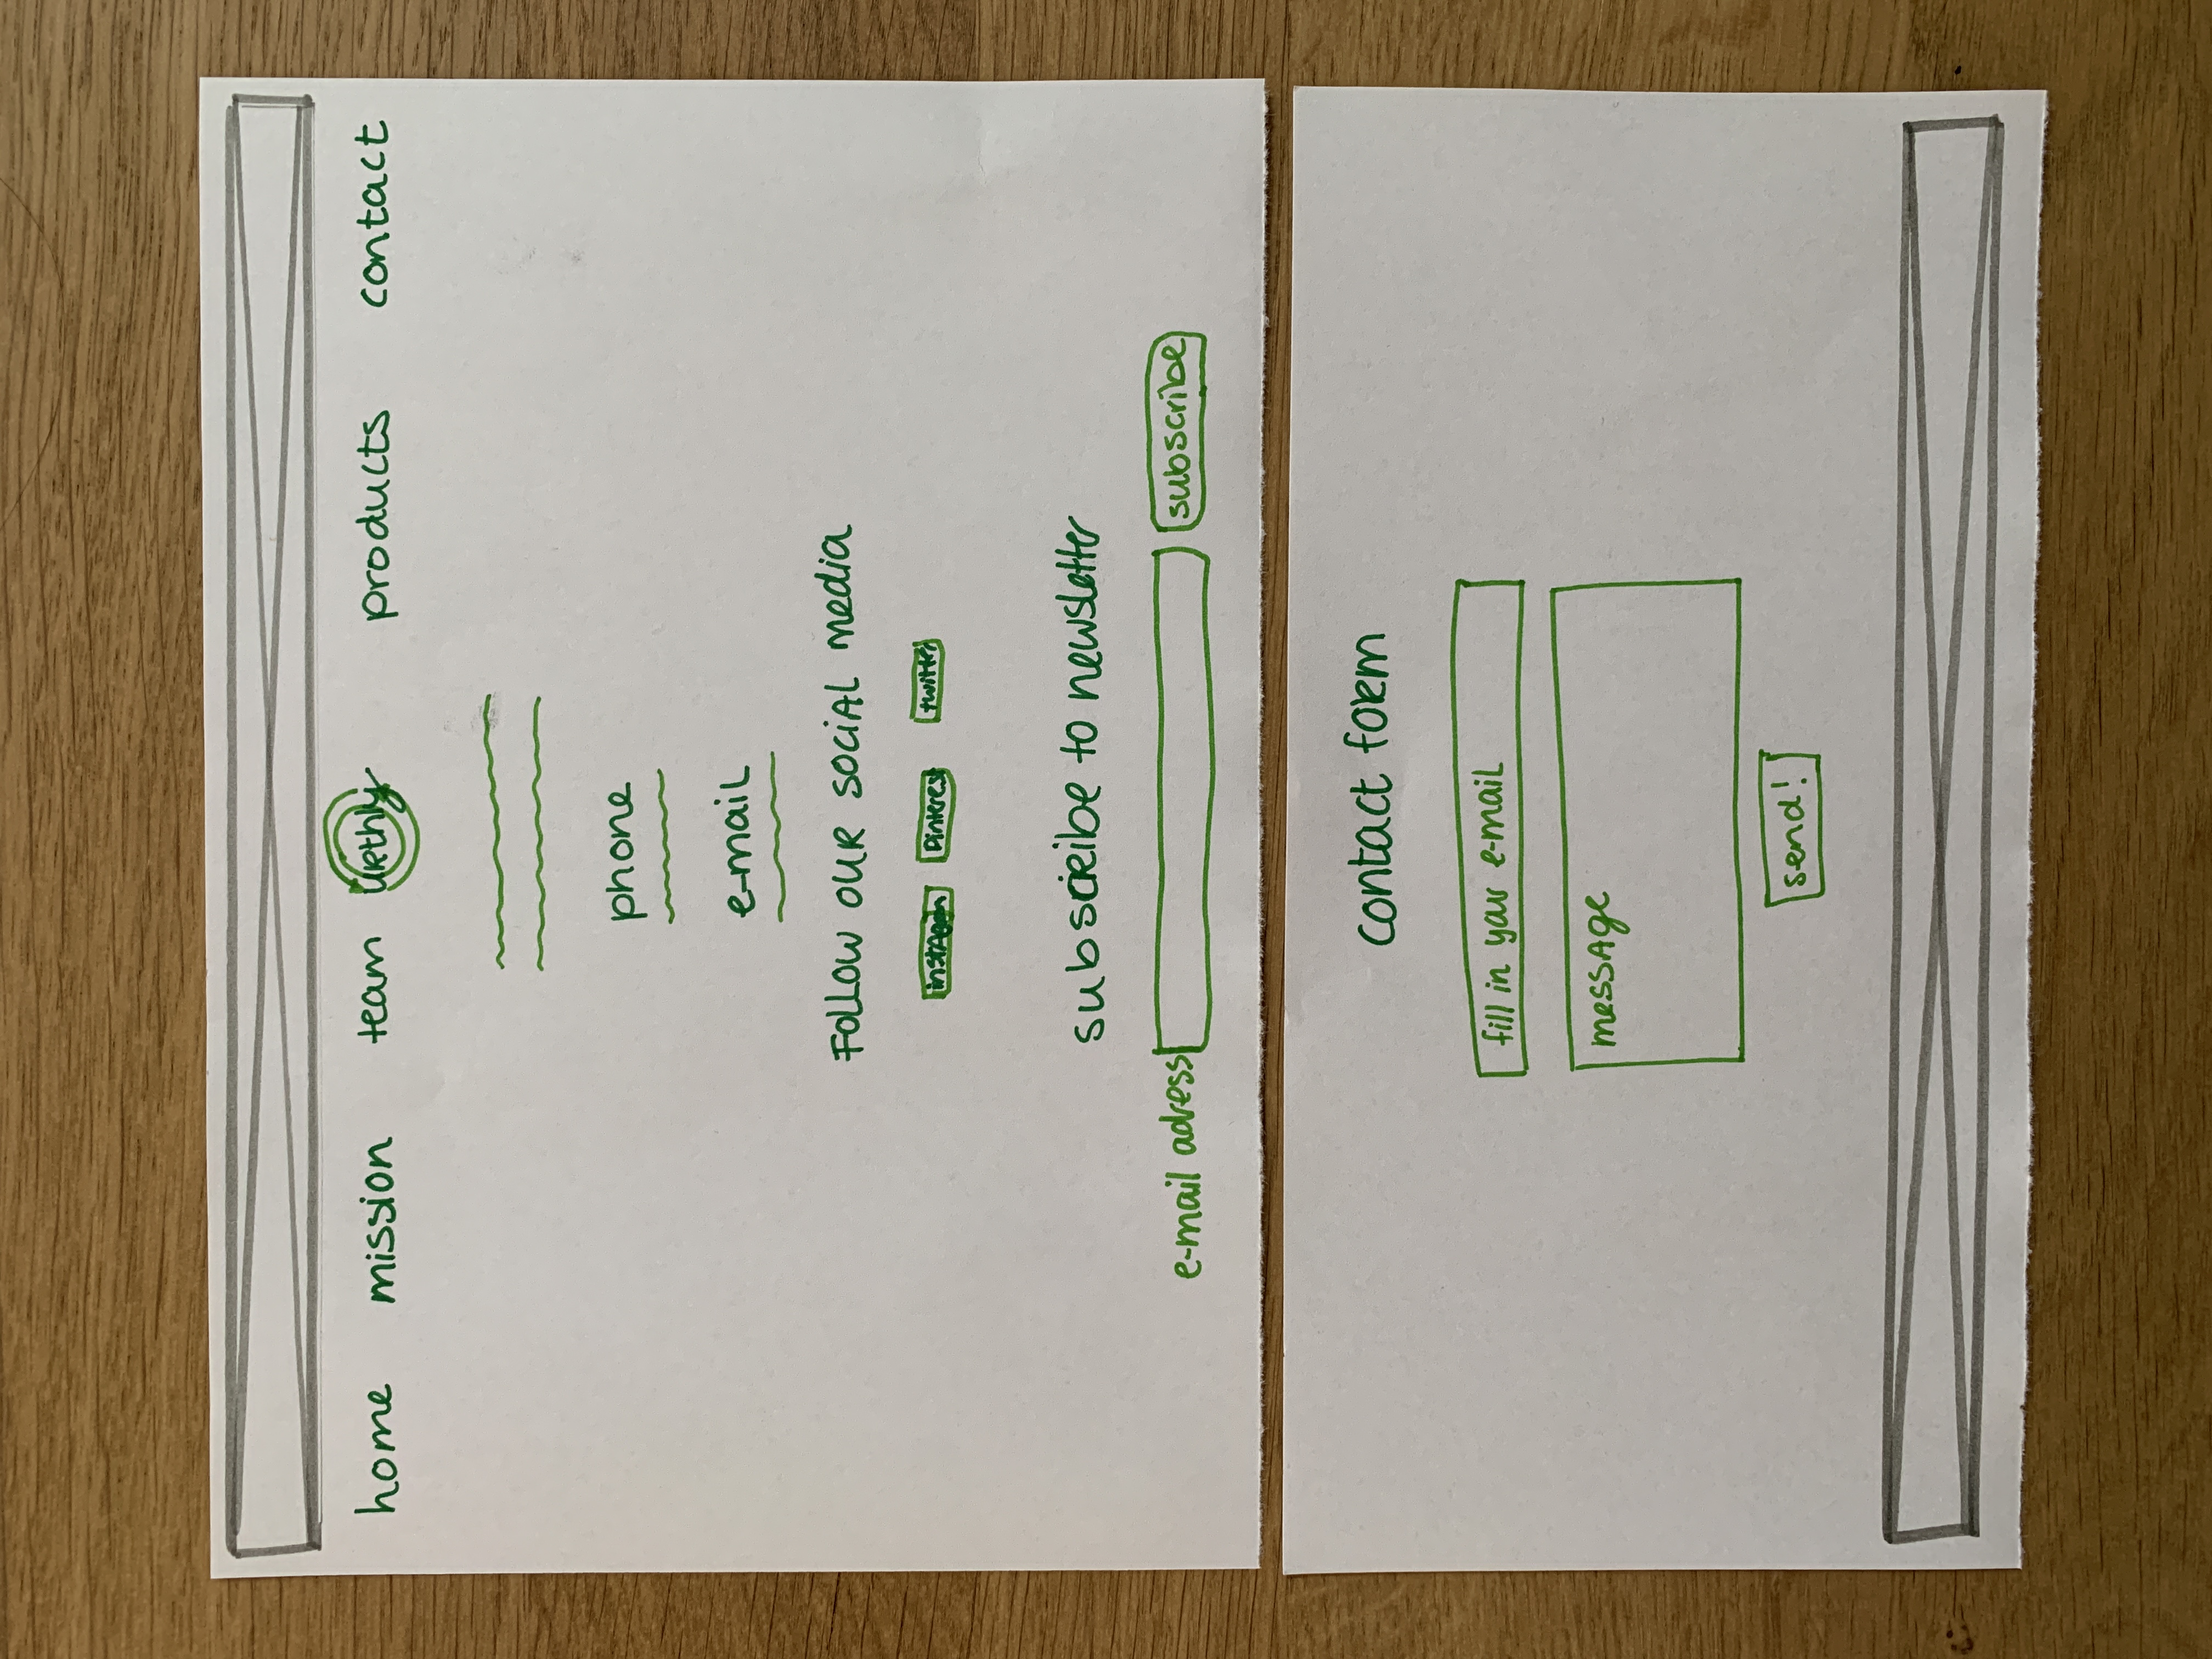 home mission team urthly products contact
phone
e-mail
Follow our social media
instagram Pinterest twitter
subscribe to newsletter
e-mail adress subscribe
contact form
fill in your e-mail
message
send!